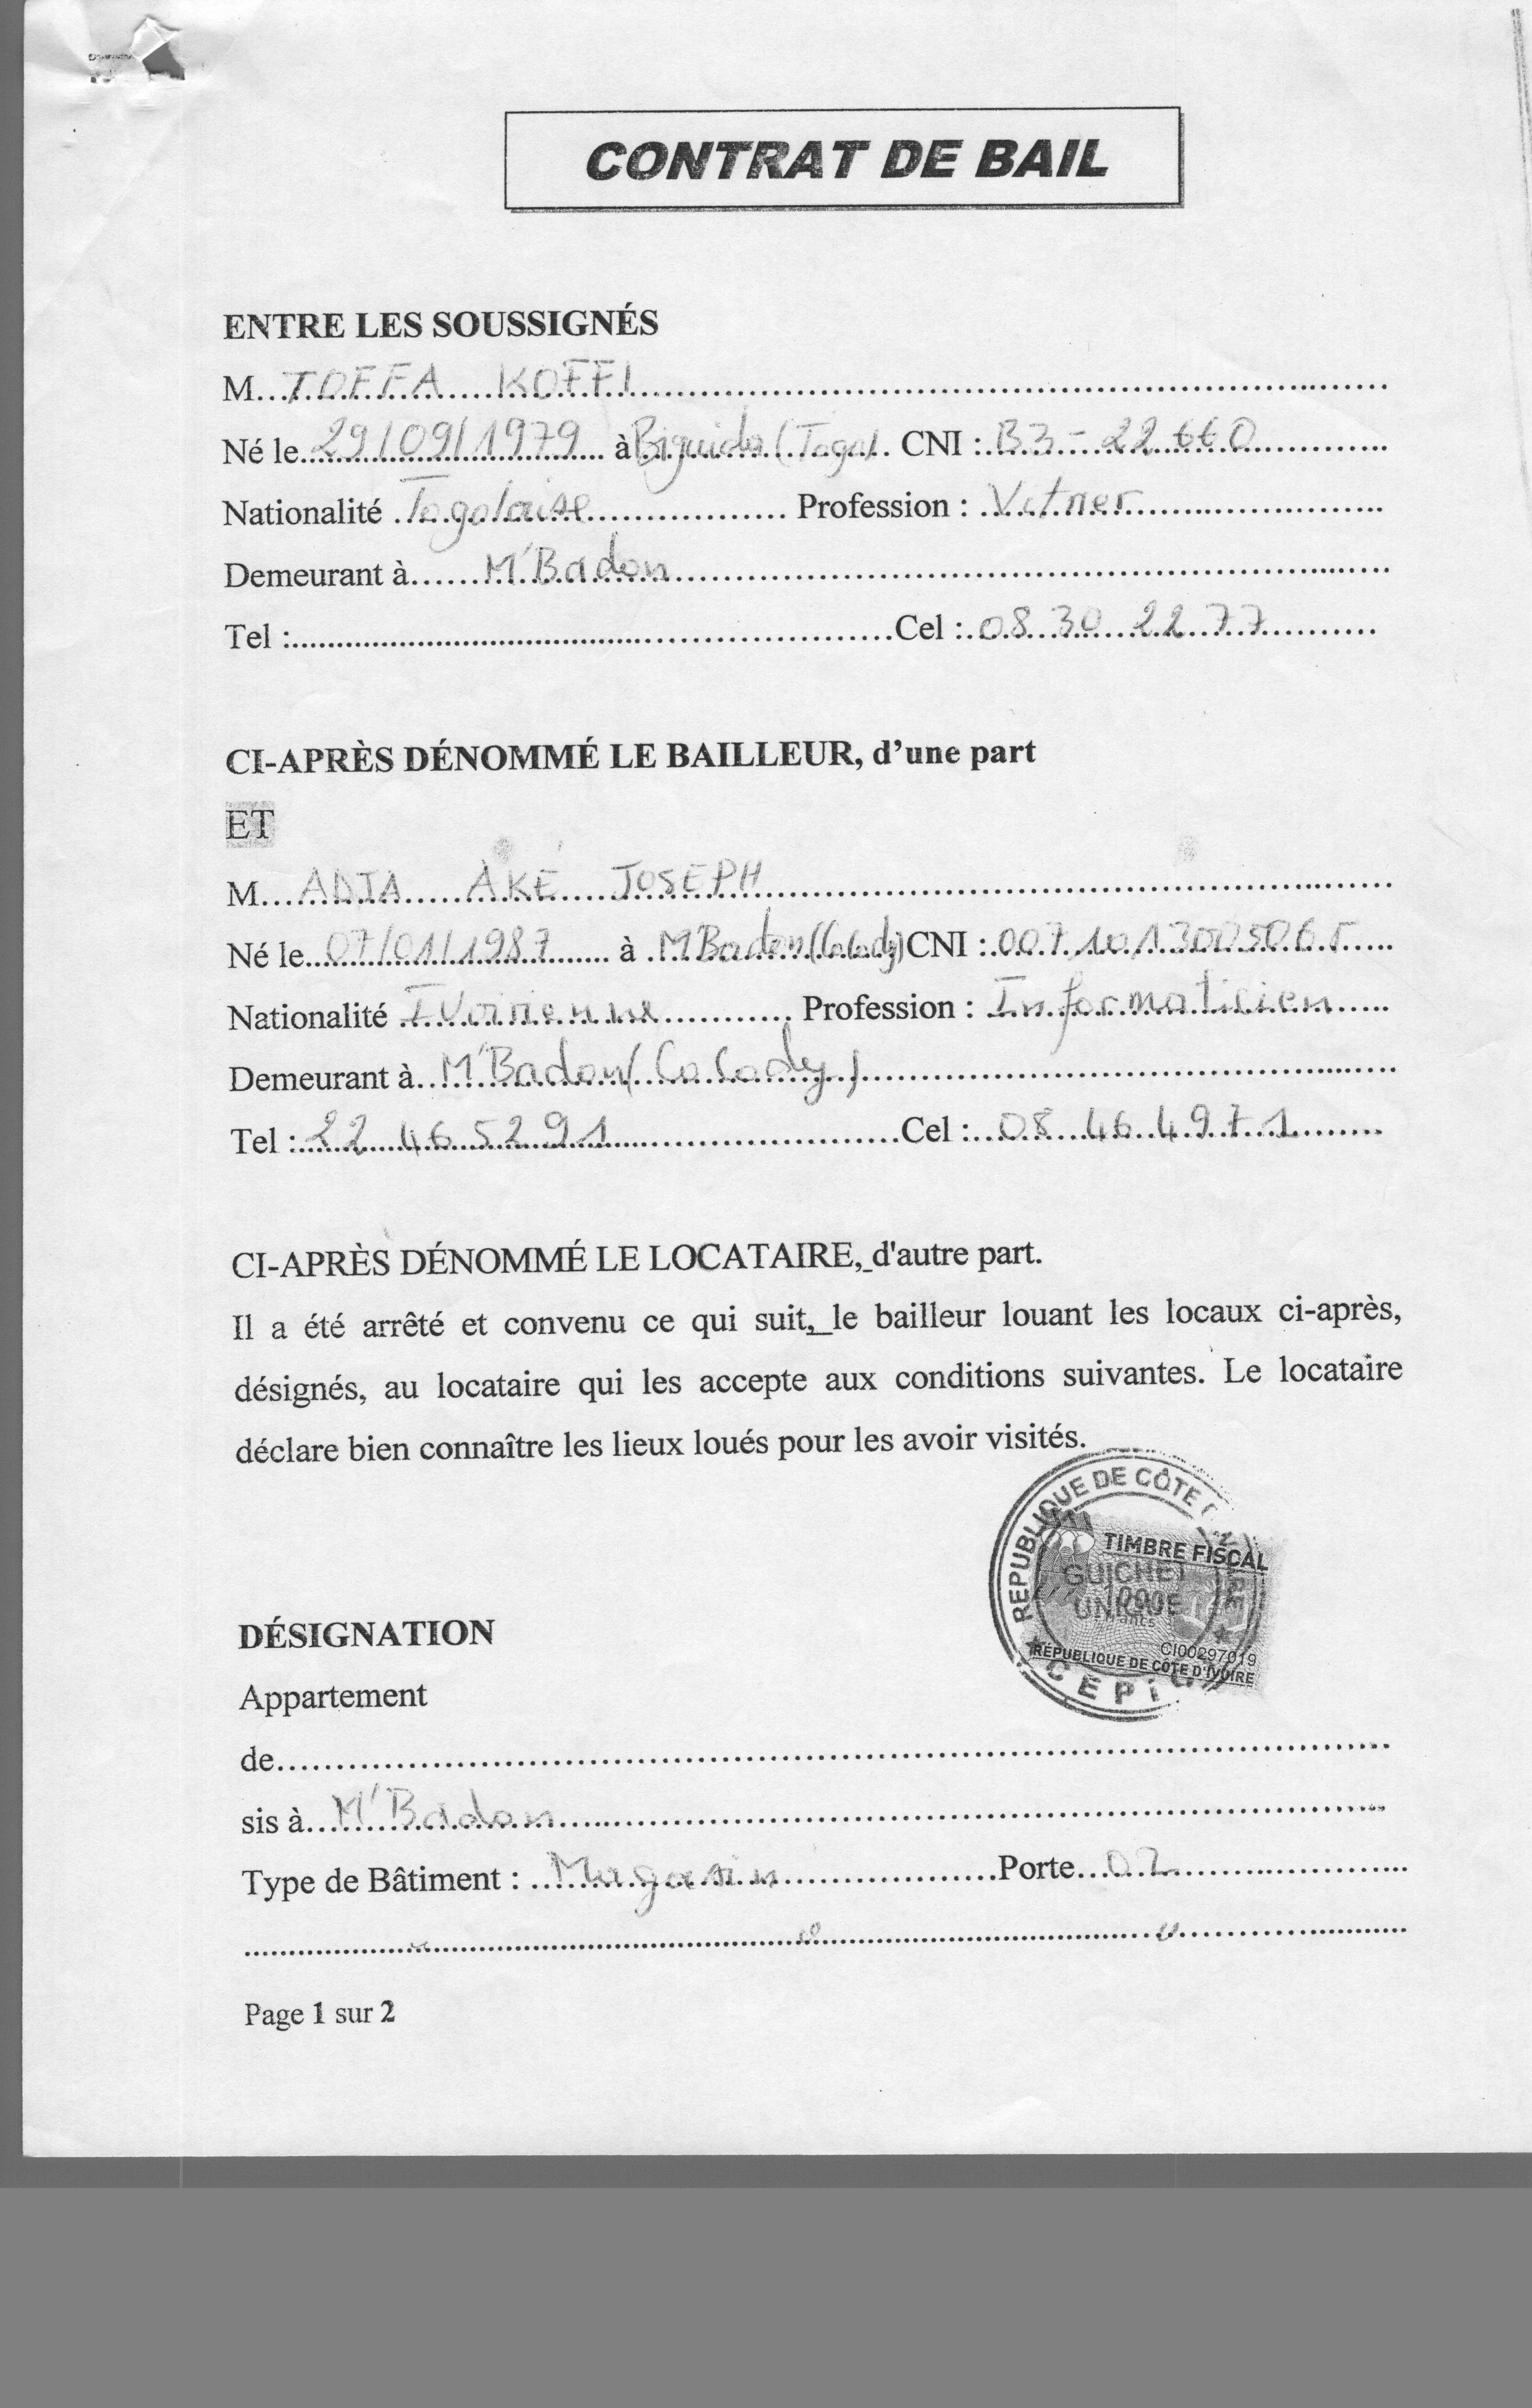 CONTRAT DE BAIL
ENTRE LES SOUSSIGNÉS
M...TOFFA KOFFI
Né le 29/09/1979 à Biguida (Togo) CNI : B3-22
Nationalité Togolaise Profession : Vitrier
Demeurant à M'Badon
Tel : Cel : 08 30 22 77
CI-APRÈS DÉNOMMÉ LE BAILLEUR, d'une part
ET
M... ADJA AKÉ JOSEPH
Né le 07/01/1987 à M'Badon (Cocody) CNI :
Nationalité Ivoirienne Profession : Informaticien
Demeurant à M'Badon (Cocody)
Tel : 22 46 52 91 Cel : 08 46 49 71
CI-APRÈS DÉNOMMÉ LE LOCATAIRE, d'autre part.
Il a été arrêté et convenu ce qui suit, le bailleur louant les locaux ci-après,
désignés, au locataire qui les accepte aux conditions suivantes. Le locataire
déclare bien connaître les lieux loués pour les avoir visités.
REPUBLIQUE DE CÔTE
TIMBRE FISCAL
GUICHET
UNIQUE
1000
Francs
CI00297019
RÉPUBLIQUE DE CÔTE D'IVOIRE
DÉSIGNATION
Appartement
de
sis à M'Badon
Type de Bâtiment : Magasin Porte 02
Page 1 sur 2